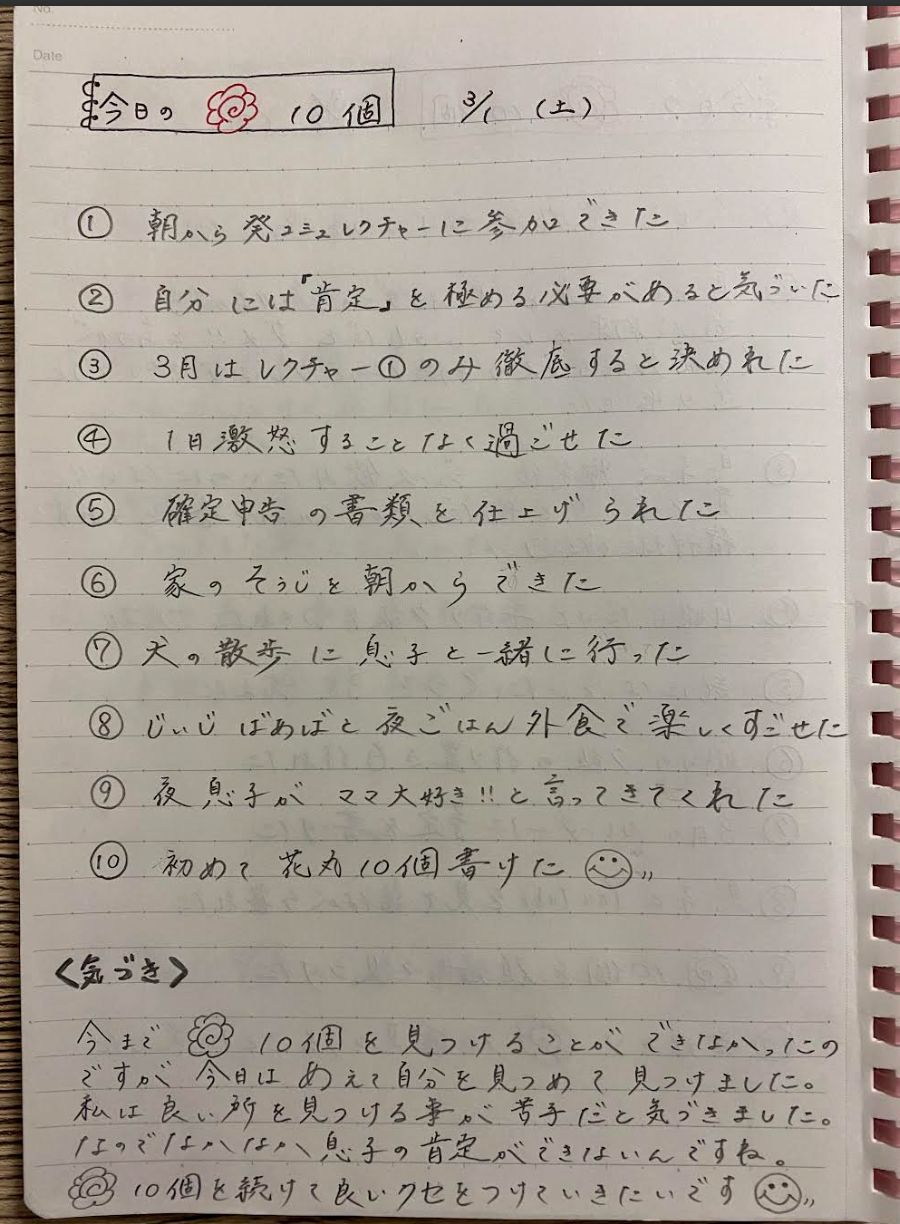 No.
Date
今日の 10個 3/1 (土)
① 朝から発コミュレクチャーに参加できた
② 自分には「肯定」を極める必要があると気づいた
③ 3月はレクチャー①のみ徹底すると決めれた
④ 1日激怒することなく過ごせた
⑤ 確定申告の書類を仕上げられた
⑥ 家のそうじを朝からできた
⑦ 犬の散歩に息子と一緒に行った
⑧ じぃじばぁばと夜ごはん外食で楽しくすごせた
⑨ 夜息子がママ大好き!!と言ってきてくれた
⑩ 初めて花丸10個書けた
<気づき>
今まで 10個を見つけることができなかったの
ですが今日はあえて自分を見つめて見つけました。
私は良い所を見つける事が苦手だと気づきました。
なのでなかなか息子の肯定ができないんですね。
10個を続けて良いクセをつけていきたいです